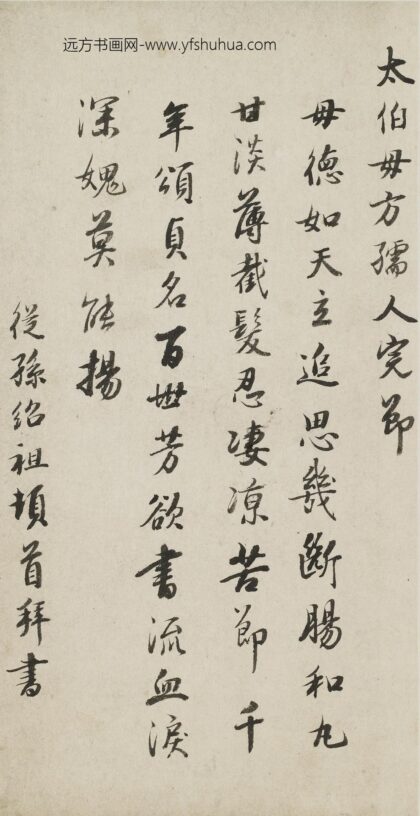 远方书画网-www.yfshuhua.com
太伯毋方孺人完節
毋德如天立追思幾斷腸和丸
甘淡薄截髮忍凄凉苦節千
年頌貞名百世芳欲書流血淚
深媿莫能揚
從孫紹祖頓首拜書